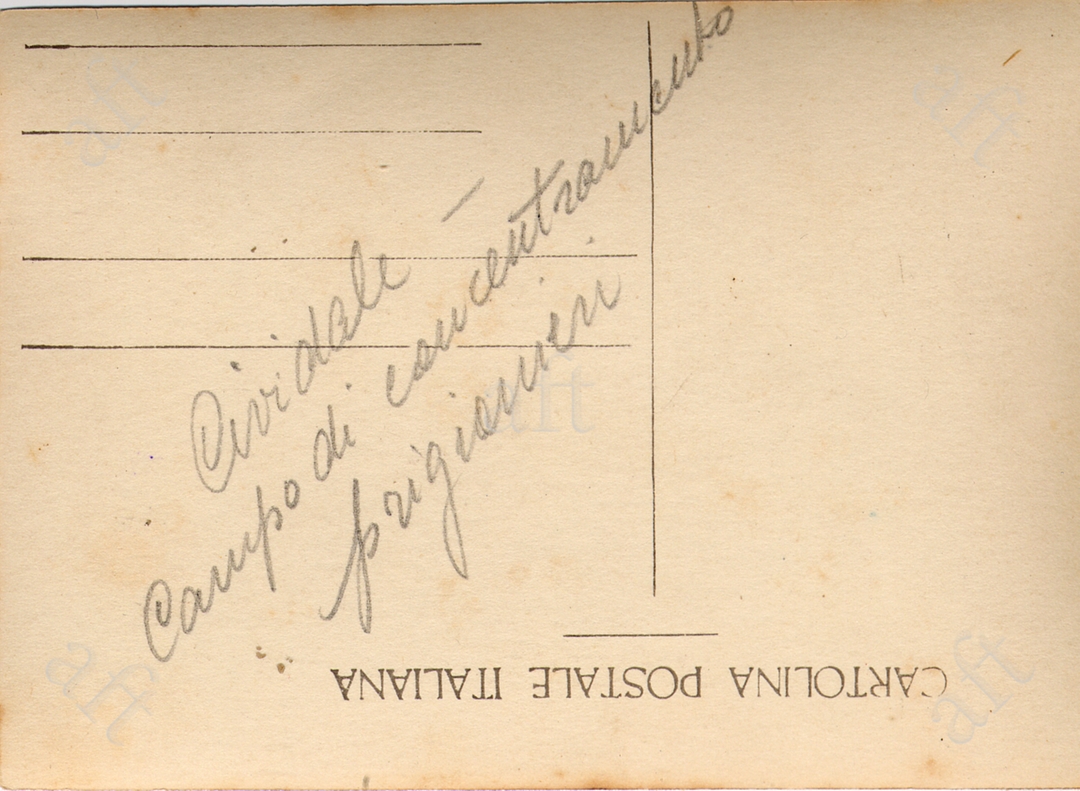 Cividale –
Campo di concentramento
prigionieri
CARTOLINA POSTALE ITALIANA
aft
aft
aft
aft
aft